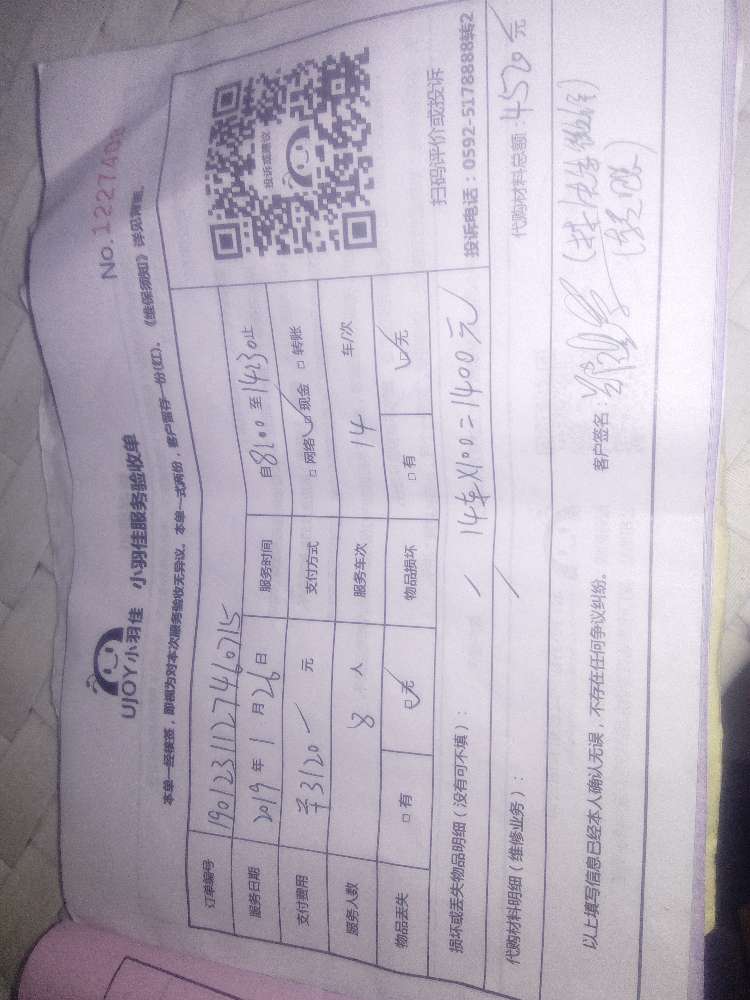 UJOY小羽佳 小羽佳服务验收单
No.122740
本单一经接签，即视为对本次服务验收无异议。本单一式两份，客户留存一份(红)。《维保须知》详见背面。
订单编号 1901231127460715
服务日期 2019年1月26日 服务时间 自8:00至14:30止
支付费用 ¥3120 元 支付方式 □网络 ☑现金 □转账
服务人数 8 人 服务车次 14 车/次
物品丢失 □有 ☑无 物品损坏 □有 ☑无
投诉或建议
扫码评价或投诉
投诉电话：0592-5178888转2
损坏或丢失物品明细（没有可不填）： / 14车×100=1400元
代购材料明细（维修业务）： / 代购材料总额：4520元
以上填写信息已经本人确认无误，不存在任何争议纠纷。 客户签名：